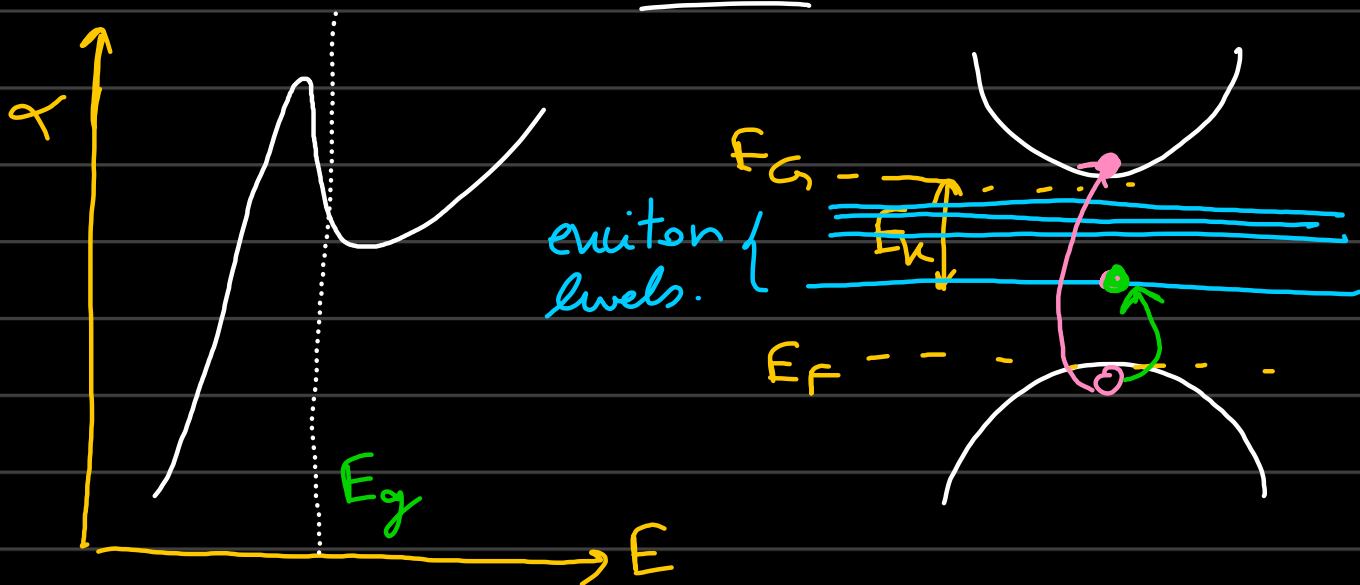 α
E_g
E
E_G
exciton
levels.
E_x
E_F